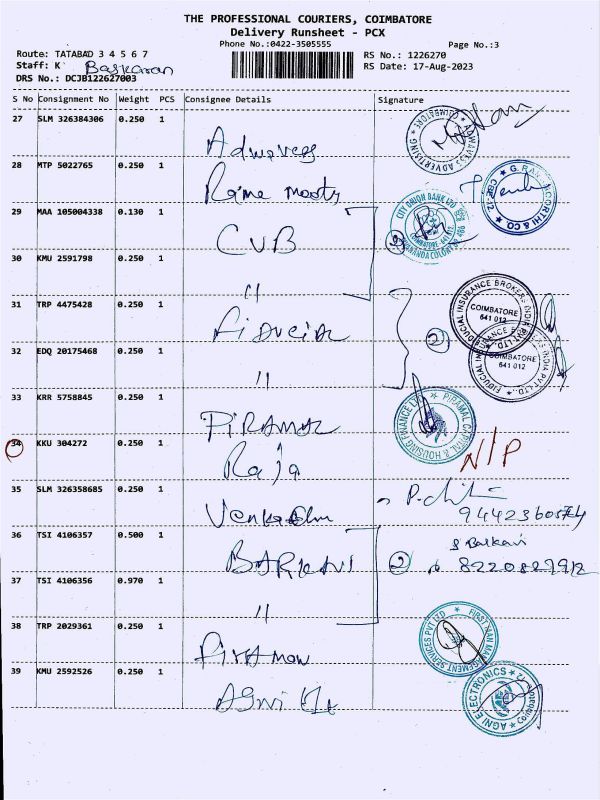 THE PROFESSIONAL COURIERS, COIMBATORE
Delivery Runsheet - PCX
Phone No.:0422-3505555
Page No.:3
Route: TATABAD 3 4 5 6 7
Staff: K Baskaran
DRS No.: DCJB122627003
RS No.: 1226270
RS Date: 17-Aug-2023
S No Consignment No Weight PCS Consignee Details Signature
27 SLM 326384306 0.250 1
28 MTP 5022765 0.250 1
29 MAA 105004338 0.130 1 CUB
30 KMU 2591798 0.250 1 "
31 TRP 4475428 0.250 1
32 EDQ 20175468 0.250 1 "
33 KRR 5758845 0.250 1 PIRAMAL
34 KKU 304272 0.250 1 Raja N/P
35 SLM 326358685 0.250 1
36 TSI 4106357 0.500 1
37 TSI 4106356 0.970 1 "
38 TRP 2029361 0.250 1
39 KMU 2592526 0.250 1 AGNI
CITY UNION BANK LTD
COIMBATORE
641 012
FIDUCIAL INSURANCE BROKERS INDIA PVT.LTD.
COIMBATORE
641 012
PIRAMAL CAPITAL & HOUSING FINANCE LTD
2
2
8220827912
FIRST MAN MANAGEMENT SERVICES PVT LTD
AGNI ELECTRONICS
Coimbatore